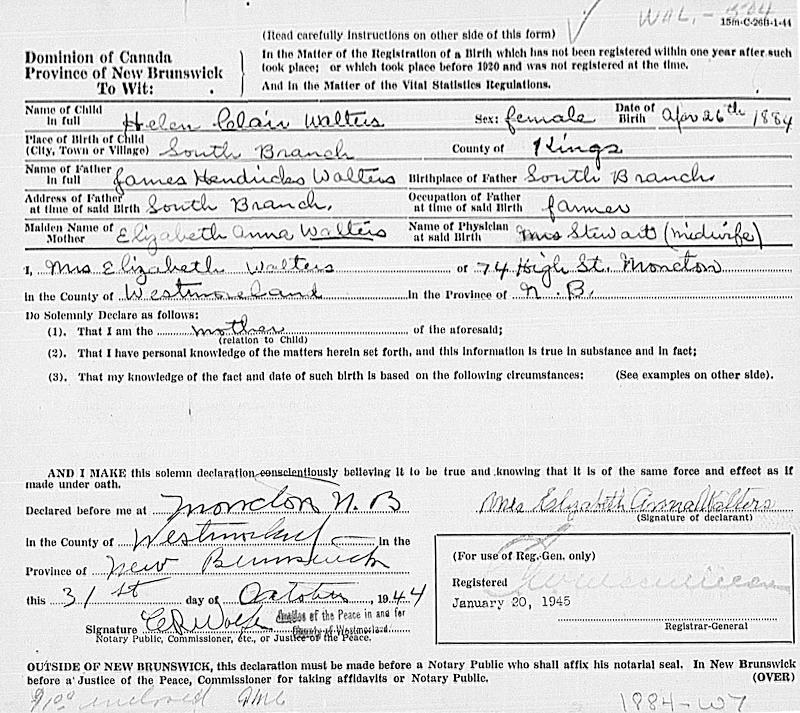 WAL. - 1884
15m-C-26B-1-44
(Read carefully instructions on other side of this form)
Dominion of Canada
Province of New Brunswick
To Wit:
In the Matter of the Registration of a Birth which has not been registered within one year after such
took place; or which took place before 1920 and was not registered at the time.
And in the Matter of the Vital Statistics Regulations.
Name of Child in full Helen Clair Walters Sex: female Date of Birth Apr 26th 1884
Place of Birth of Child (City, Town or Village) South Branch County of Kings
Name of Father in full James Hendricks Walters Birthplace of Father South Branch.
Address of Father at time of said Birth South Branch. Occupation of Father at time of said Birth farmer
Maiden Name of Mother Elizabeth Anna Walters Name of Physician at said Birth Mrs Stewart (midwife)
I, Mrs Elizabeth Walters of 74 High St. Moncton
in the County of Westmoreland in the Province of N.B.
Do Solemnly Declare as follows:
(1). That I am the mother of the aforesaid;
(relation to Child)
(2). That I have personal knowledge of the matters herein set forth, and this information is true in substance and in fact;
(3). That my knowledge of the fact and date of such birth is based on the following circumstances: (See examples on other side).
AND I MAKE this solemn declaration conscientiously believing it to be true and knowing that it is of the same force and effect as if
made under oath.
Declared before me at Moncton N.B
Mrs Elizabeth Anna Walters
(Signature of declarant)
in the County of Westmorland in the
Province of New Brunswick
this 31st day of October, 1944
Signature
Justice of the Peace in and for
County of Westmorland
Notary Public, Commissioner, etc., or Justice of the Peace.
(For use of Reg.-Gen. only)
Registered
January 20, 1945
Registrar-General
OUTSIDE OF NEW BRUNSWICK, this declaration must be made before a Notary Public who shall affix his notarial seal. In New Brunswick
before a Justice of the Peace, Commissioner for taking affidavits or Notary Public. (OVER)
$1.00 enclosed
1884-W7